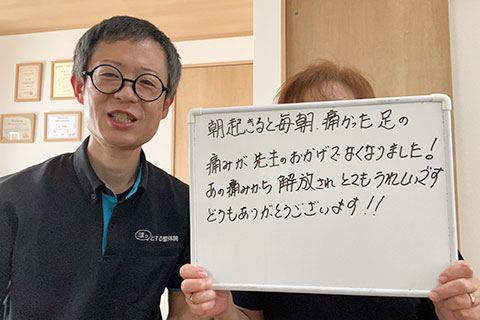 朝起きると毎朝、痛かった足の
痛みが先生のおかげでなくなりました!
あの痛みから解放されとてもうれしいです
どうもありがとうございます!!
ほっとする整体院